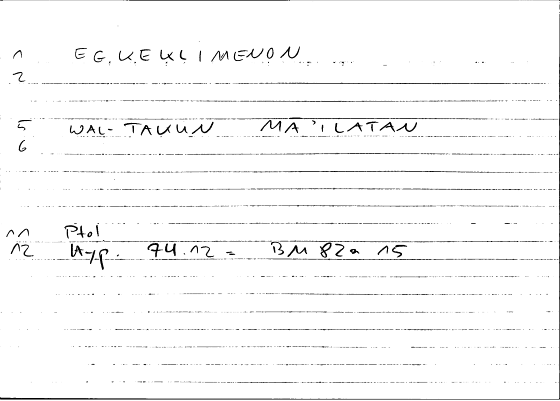 1 EG.KEKLIMENON
2
5 WAL-TAKUN MĀ'ILATAN
6
11 Ptol
12 Hyp. 74.12 = BM 82a 15